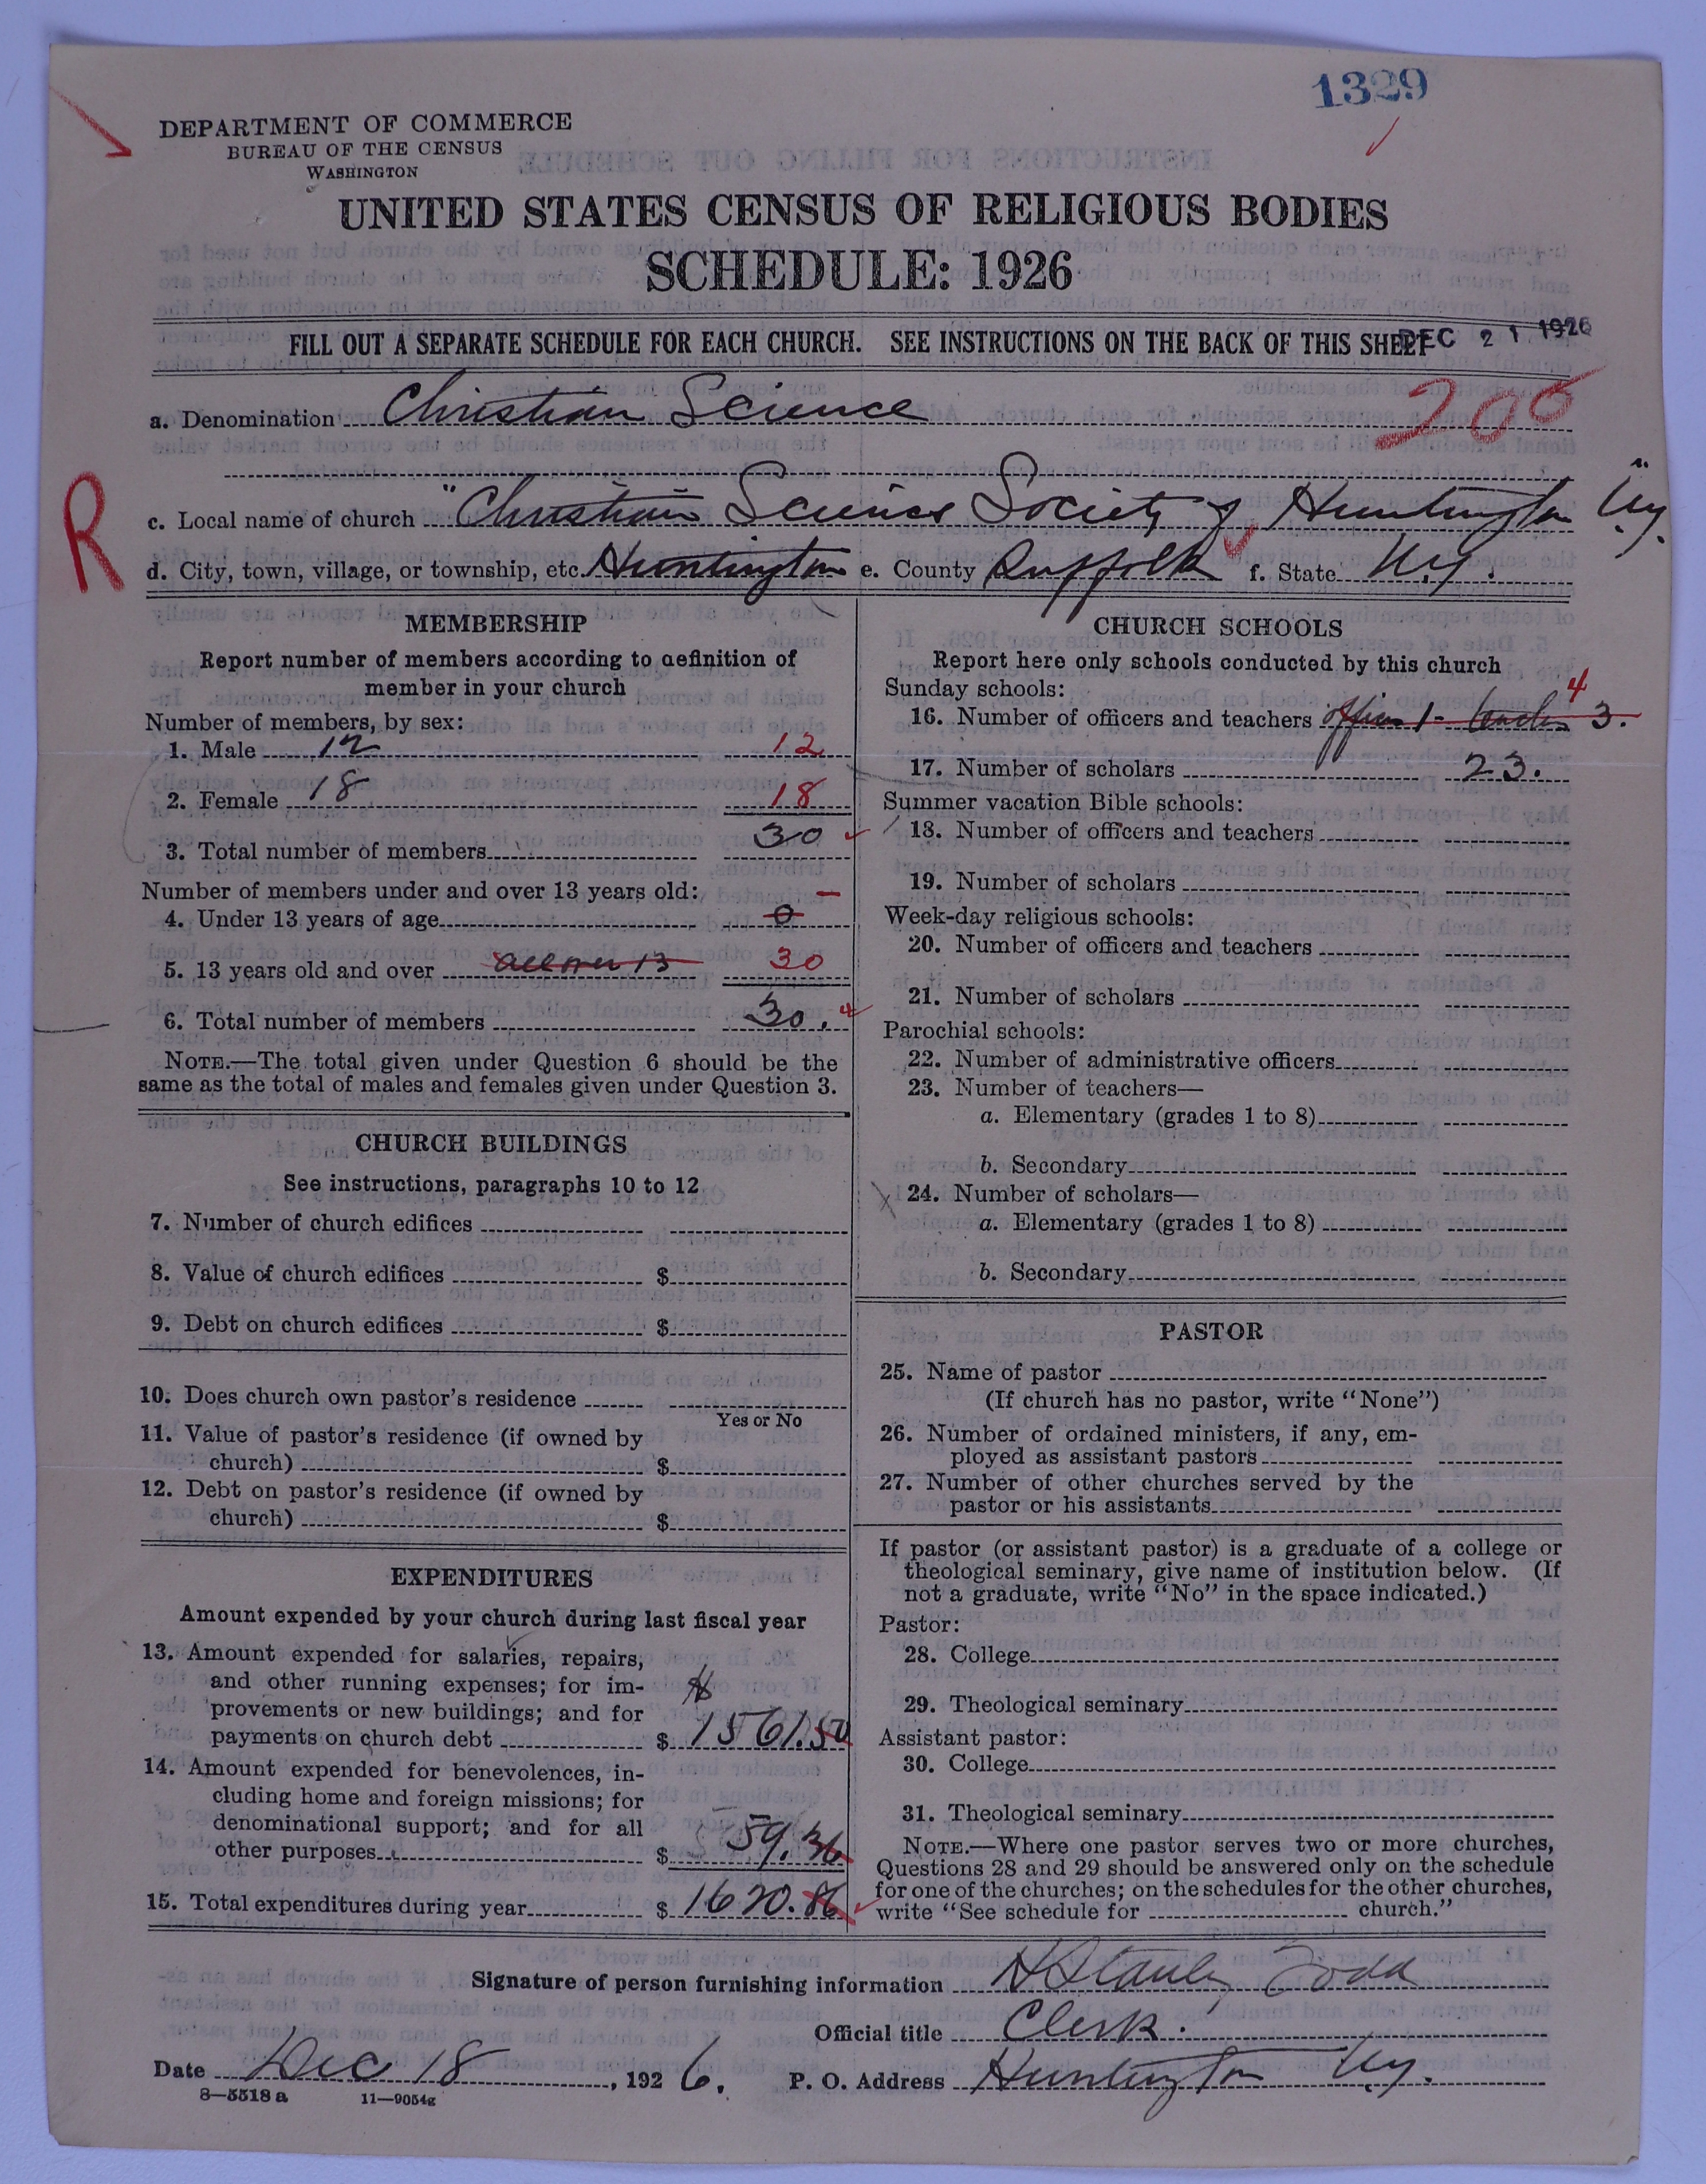 1329
DEPARTMENT OF COMMERCE
BUREAU OF THE CENSUS
WASHINGTON
UNITED STATES CENSUS OF RELIGIOUS BODIES
SCHEDULE: 1926
FILL OUT A SEPARATE SCHEDULE FOR EACH CHURCH. SEE INSTRUCTIONS ON THE BACK OF THIS SHEET
DEC 21 1926
a. Denomination Christian Science
200
R
c. Local name of church "Christian Science Society of Huntington N.Y."
d. City, town, village, or township, etc. Huntington e. County Suffolk f. State N.Y.
MEMBERSHIP
Report number of members according to definition of
member in your church
Number of members, by sex:
1. Male 12 12
2. Female 18 18
3. Total number of members 30
Number of members under and over 13 years old: -
4. Under 13 years of age 0
5. 13 years old and over all over 13 30
6. Total number of members 30.
NOTE.—The total given under Question 6 should be the
same as the total of males and females given under Question 3.
CHURCH BUILDINGS
See instructions, paragraphs 10 to 12
7. Number of church edifices
8. Value of church edifices $
9. Debt on church edifices $
10. Does church own pastor's residence
Yes or No
11. Value of pastor's residence (if owned by
church) $
12. Debt on pastor's residence (if owned by
church) $
EXPENDITURES
Amount expended by your church during last fiscal year
13. Amount expended for salaries, repairs,
and other running expenses; for im-
provements or new buildings; and for
payments on church debt $ 1561.50
14. Amount expended for benevolences, in-
cluding home and foreign missions; for
denominational support; and for all
other purposes $ 59.36
15. Total expenditures during year $ 1620.86
CHURCH SCHOOLS
Report here only schools conducted by this church
Sunday schools:
16. Number of officers and teachers officer 1 - teachers 3. 4
17. Number of scholars 23.
Summer vacation Bible schools:
18. Number of officers and teachers
19. Number of scholars
Week-day religious schools:
20. Number of officers and teachers
21. Number of scholars
Parochial schools:
22. Number of administrative officers
23. Number of teachers—
a. Elementary (grades 1 to 8)
b. Secondary
24. Number of scholars—
a. Elementary (grades 1 to 8)
b. Secondary
PASTOR
25. Name of pastor
(If church has no pastor, write "None")
26. Number of ordained ministers, if any, em-
ployed as assistant pastors
27. Number of other churches served by the
pastor or his assistants
If pastor (or assistant pastor) is a graduate of a college or
theological seminary, give name of institution below. (If
not a graduate, write "No" in the space indicated.)
Pastor:
28. College
29. Theological seminary
Assistant pastor:
30. College
31. Theological seminary
NOTE.—Where one pastor serves two or more churches,
Questions 28 and 29 should be answered only on the schedule
for one of the churches; on the schedules for the other churches,
write "See schedule for church."
Signature of person furnishing information H Stanley Todd
Official title Clerk.
Date Dec 18, 1926. P. O. Address Huntington N.Y.
8—5518 a 11—9054g